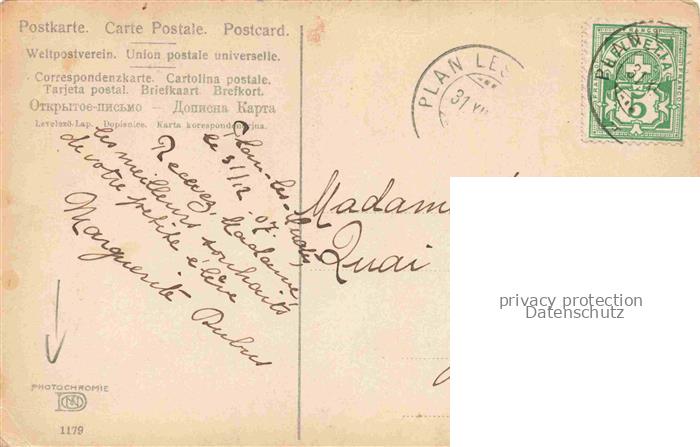 Postkarte. Carte Postale. Postcard.
Weltpostverein. Union postale universelle.
Correspondenzkarte. Cartolina postale.
Tarjeta postal. Briefkaart. Brefkort.
Открытое-письмо — Дописна Карта
Levelező-Lap. Dopisnice. Karta korespondencyjna.
PLAN LES
31 XII
HELVETIA
FRANCO
5
Plan-les-Ouates
le 31/12 - 07.
Recevez, Madame,
les meilleurs souhaits
de votre petite élève
Marguerite Dubus
Madame
Quai
privacy protection
Datenschutz
PHOTOCHROMIE
1179